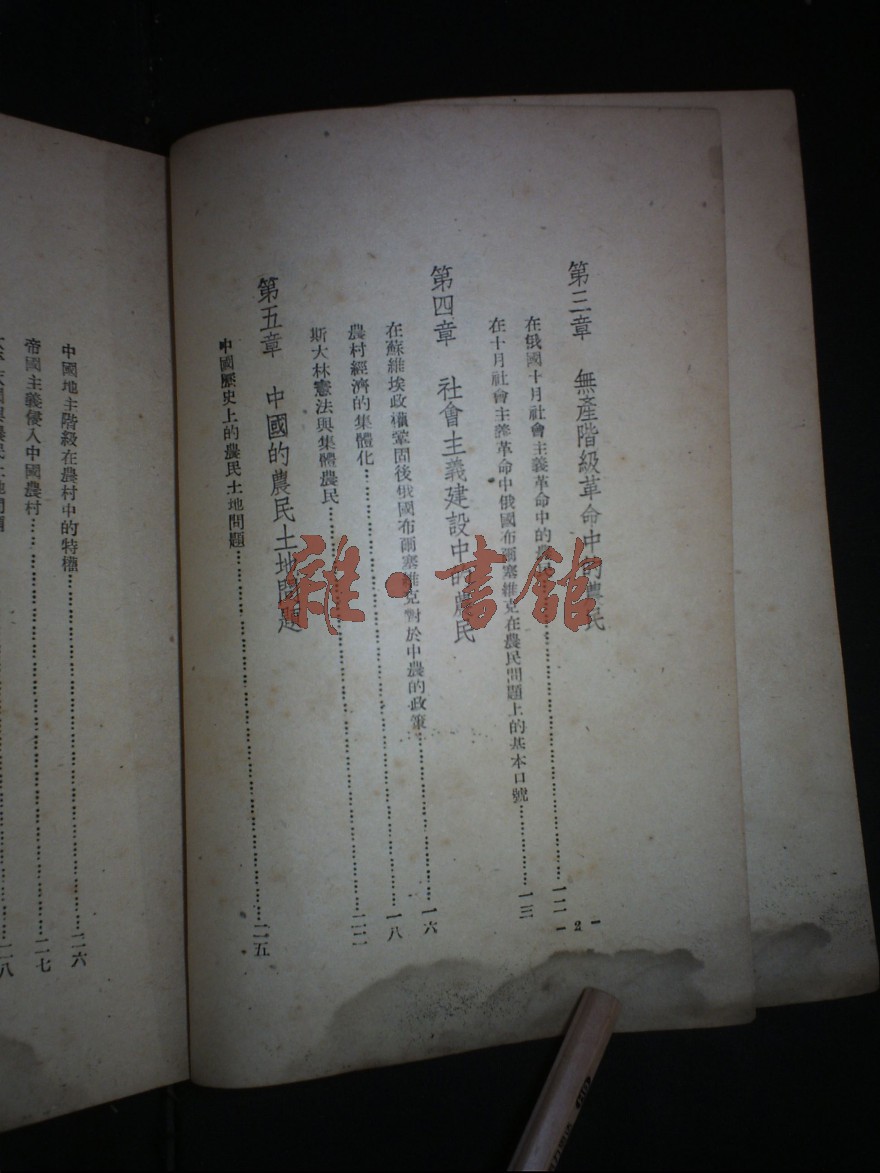 第三章 無產階級革命中的農民
在俄國十月社會主義革命中的農民……一二
在十月社會主義革命中俄國布爾塞維克在農民問題上的基本口號……一三
第四章 社會主義建設中的農民
在蘇維埃政權鞏固後俄國布爾塞維克對於中農的政策……一六
農村經濟的集體化……一八
斯大林憲法與集體農民……二二
第五章 中國的農民土地問題
中國歷史上的農民土地問題……二五
— 2 —
中國地主階級在農村中的特權……二六
帝國主義侵入中國農村……二七
農民土地問題……二八
雜·書館